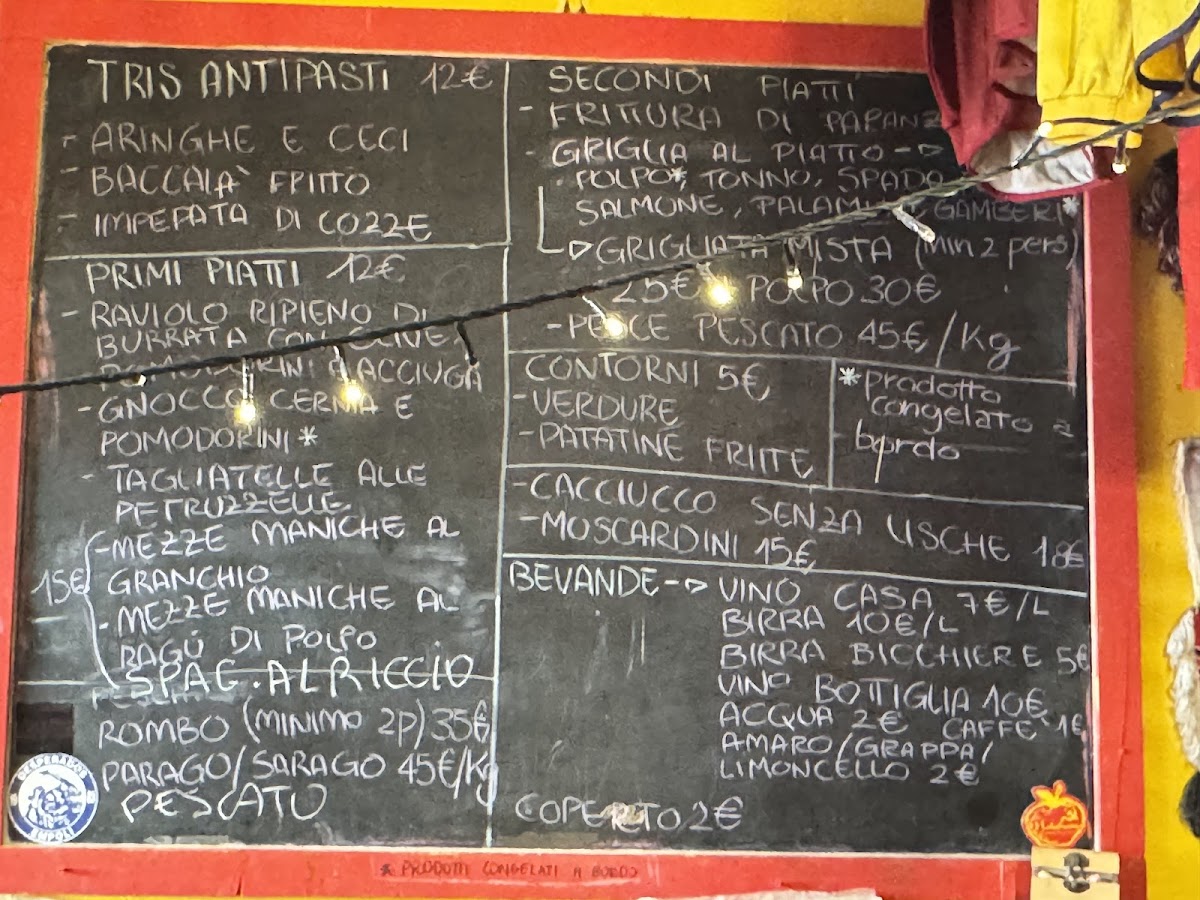 TRIS ANTIPASTI 12€
- ARINGHE E CECI
- BACCALA` FRITTO
- IMPEPATA DI COZZE
PRIMI PIATTI 12€
- RAVIOLO RIPIENO DI
BURRATA CON OLIVE,
POMODORINI E ACCIUGA
- GNOCCO CERNIA E
POMODORINI *
- TAGLIATELLE ALLE
PETRUZZELLE
- MEZZE MANICHE AL
GRANCHIO
15€
- MEZZE MANICHE AL
RAGÙ DI POLPO
SPAG. AL RICCIO
ROMBO (MINIMO 2P) 35€
PARAGO/SARAGO 45€/Kg
PESCATO
SECONDI PIATTI
- FRITTURA DI PARANZ
- GRIGLIA AL PIATTO
POLPO*, TONNO, SPADA
SALMONE, GAMBERI*
GRIGLIATA MISTA (min 2 pers)
25€ POLPO 30€
- PESCE PESCATO 45€/Kg
CONTORNI 5€
- VERDURE
- PATATINE FRITTE
* prodotto
congelato a
bordo
- CACCIUCCO SENZA LISCHE 18€
- MOSCARDINI 15€
BEVANDE --> VINO CASA 7€/L
BIRRA 10€/L
BIRRA BICCHIERE 5€
VINO BOTTIGLIA 10€
ACQUA 2€ CAFFE` 1€
AMARO/GRAPPA/
LIMONCELLO 2€
COPERTO 2€
DESPERADOS
EMPOLI
* PRODOTTI CONGELATI A BORDO